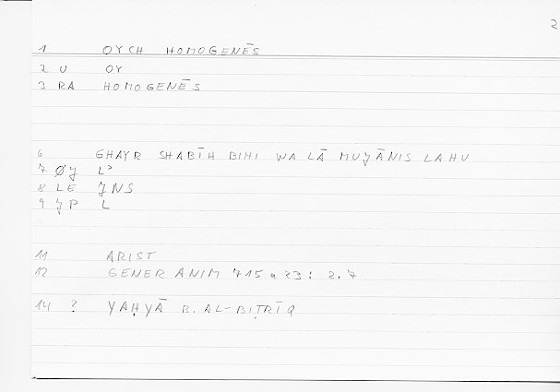 2
1 OYCH HOMOGENĒS
2 U OY
3 RA HOMOGENĒS
6 GHAYR SHABĪH BIHI WA LĀ MUǦĀNIS LAHU
7 ØJ Lʾ
8 LE ǦNS
9 JP L
11 ARIST
12 GENER ANIM 715 a 23: 2.7
14 ? YAḤYĀ B. AL-BIṬRĪQ